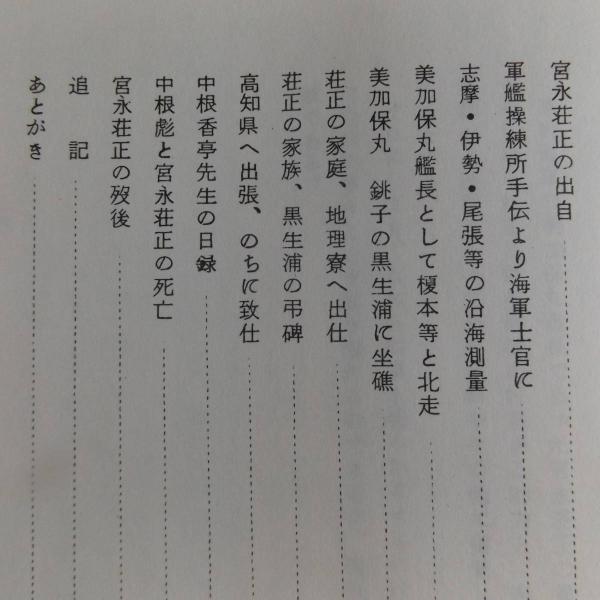 宮永荘正の出自
軍艦操練所手伝より海軍士官に
志摩・伊勢・尾張等の沿海測量
美加保丸艦長として榎本等と北走
美加保丸　銚子の黒生浦に坐礁
荘正の家庭、地理寮へ出仕
荘正の家族、黒生浦の弔碑
高知県へ出張、のちに致仕
中根香亭先生の日録
中根彪と宮永荘正の死亡
宮永荘正の歿後
追　記
あとがき